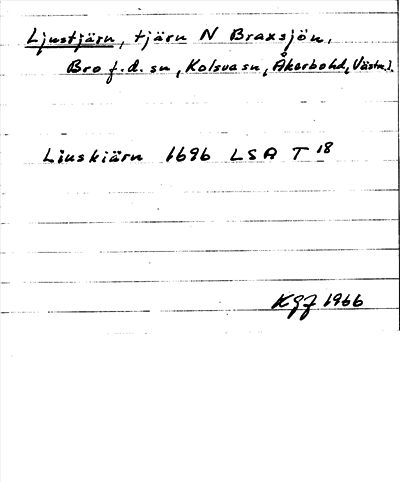 Ljustjärn, tjärn N Braxsjön,
Bro f.d. sn, Kolsva sn, Åkerbohd, Västm.
Liuskiärn 1696 LSA T 18
KGF 1966